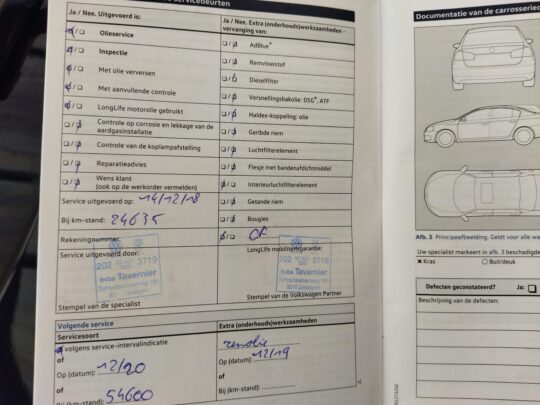 servicebeurten
Ja / Nee. Uitgevoerd is:
Olieservice
Inspectie
Met olie verversen
Met aanvullende controle
LongLife motorolie gebruikt
Controle op corrosie en lekkage van de
aardgasinstallatie
Controle van de koplampafstelling
Reparatieadvies
Wens klant
(ook op de werkorder vermelden)
Service uitgevoerd op: 14/12/18
Bij km-stand: 24635
Rekeningnummer:
Service uitgevoerd door:
202 3719
bvba Tavernier
Stempel van de specialist
Ja / Nee. Extra (onderhouds)werkzaamheden -
vervanging van:
AdBlue®
Remvloeistof
Dieselfilter
Versnellingsbakolie: DSG®, ATF
Haldex-koppeling: olie
Geribde riem
Luchtfilterelement
Flesje met bandenafdichtmiddel
Interieurluchtfilterelement
Getande riem
Bougies
OF
LongLife mobiliteitsgarantie:
202 3719
bvba Tavernier
Stempel van de Volkswagen Partner
Volgende service
Servicesoort
volgens service-intervalindicatie
of
Op (datum): 12/20
of
Bij (km-stand): 54600
Extra (onderhouds)werkzaamheden
remolie
Op (datum): 12/19
of
Bij (km-stand):
Documentatie van de carrosserie
Afb. 3 Principeafbeelding. Geldt voor alle
Uw specialist markeert in afb. 3 beschadig
x Kras O Buil/deuk
Defecten geconstateerd? Ja:
Beschrijving van de defecten: